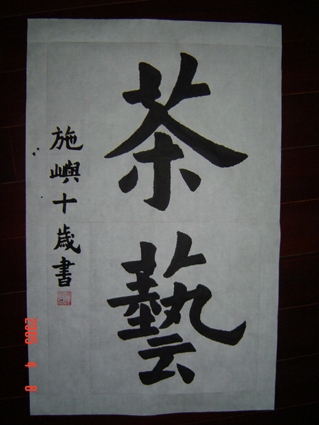 茶藝
施嶼十歲書
2006 4 8